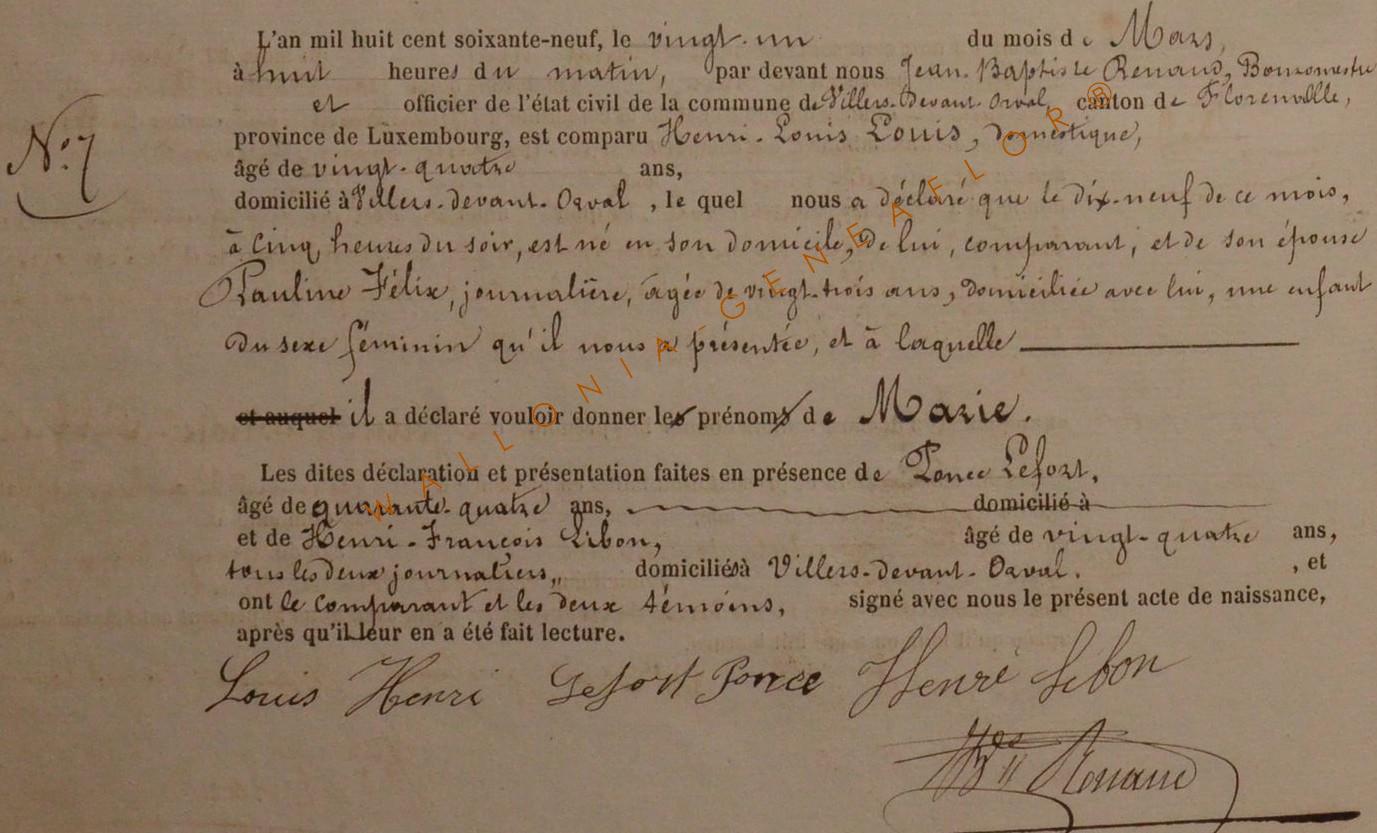 L'an mil huit cent soixante-neuf, le vingt-un du mois de Mars,
à huit heures du matin, par devant nous Jean-Baptiste Renaud, Bourgmestre
et officier de l'état civil de la commune de Villers-devant-Orval, canton de Florenville,
N.° 7
province de Luxembourg, est comparu Henri-Louis Louis, domestique,
âgé de vingt-quatre ans,
domicilié à Villers-devant-Orval, le quel nous a déclaré que le dix-neuf de ce mois,
à cinq heures du soir, est né en son domicile, de lui, comparant, et de son épouse
Pauline Félix, journalière, agée de vingt-trois ans, domiciliée avec lui, une enfant
du sexe féminin qu'il nous a présentée, et à laquelle
et auquel il a déclaré vouloir donner les prénoms de Marie.
Les dites déclaration et présentation faites en présence de Ponce Lefort,
âgé de quarante-quatre ans, domicilié à
et de Henri-François Libon, âgé de vingt-quatre ans,
tous les deux journaliers, domiciliés à Villers-devant-Orval. , et
ont le comparant et les deux témoins, signé avec nous le présent acte de naissance,
après qu'il leur en a été fait lecture.
Louis Henri Lefort Ponce Henri Libon
Renaud
WALLONIA-GENEAFLOR®